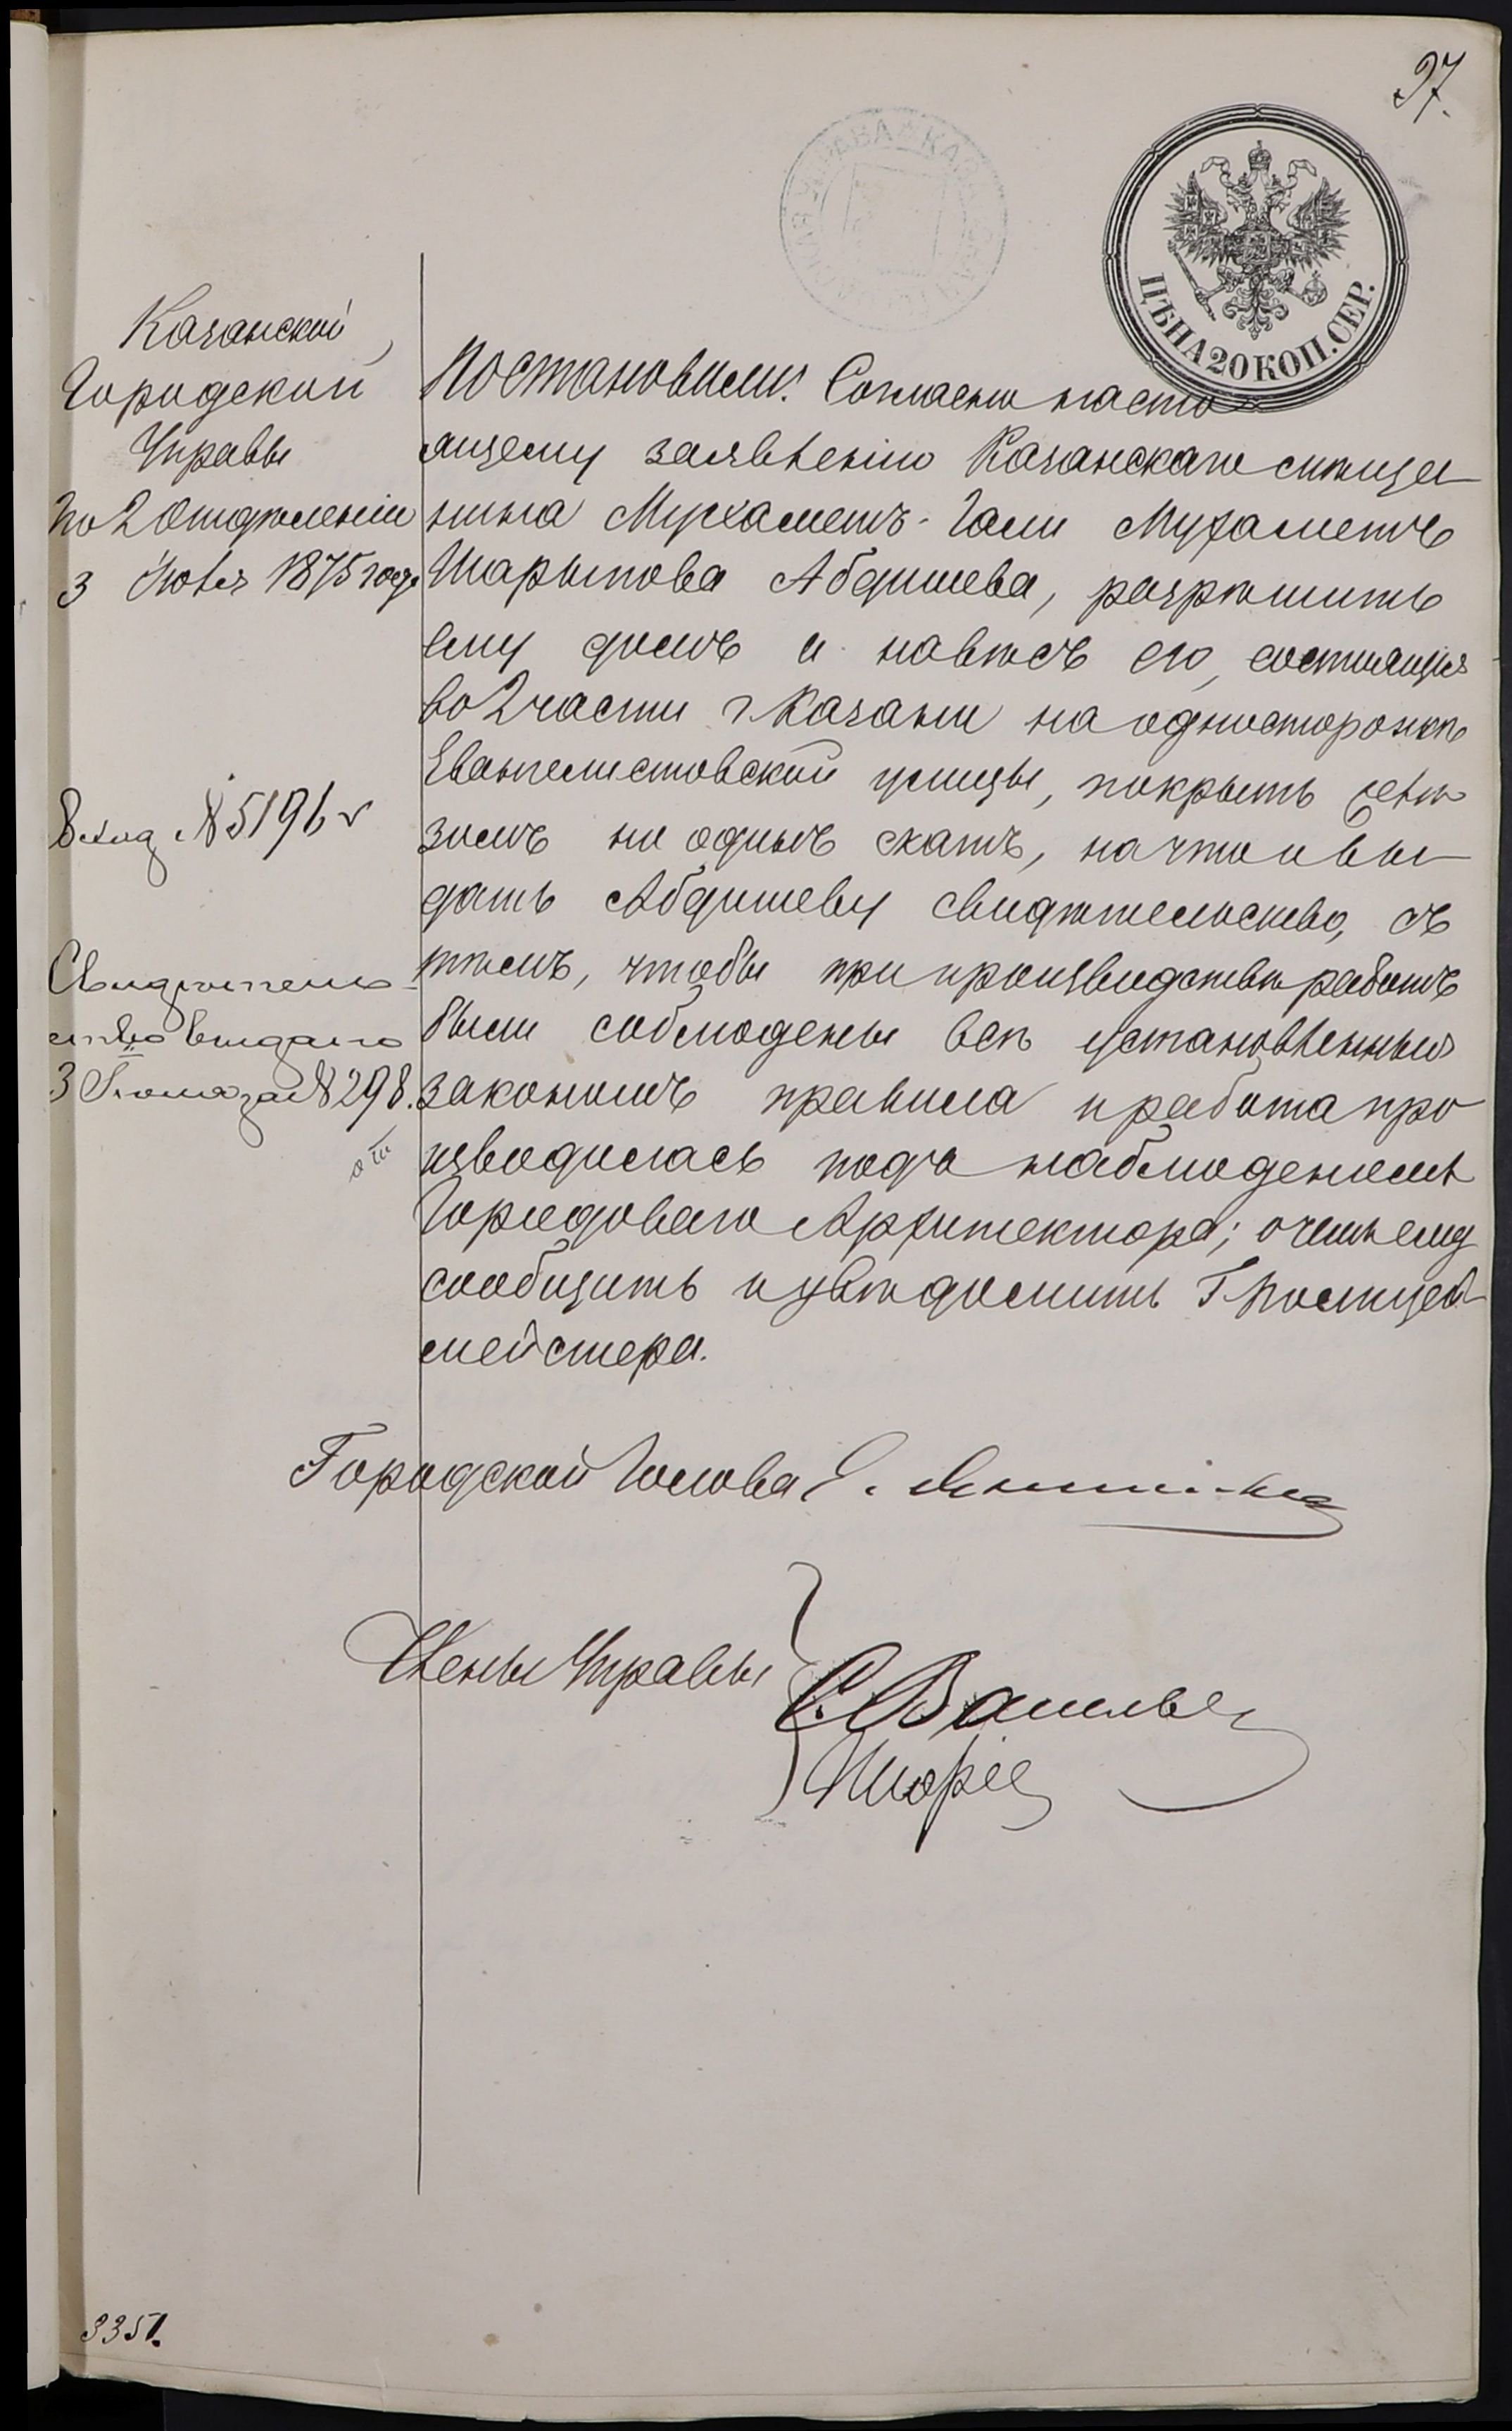 97.
ЦѢНА 20 КОП. СЕР.
Казанской
Городской
Управы
по 2 Отдѣленію
3 Іюля 1875 года
Вход № 5196
Свидѣтель-
ство выдано
3 Іюля за № 298.
Постановили: Согласно насто
ящему заявленію Казанскаго мѣща-
нина Мухаметъ-Гали Мухаметъ
Шарыпова Абдишева, разрѣшить
ему домъ и навѣсъ его, состоящія
во 2 части г. Казани на одностороннѣ
Евангелистовской улицы, покрыть желѣ
зомъ на одинъ скатъ, на что и вы-
дать Абдишеву свидѣтельство, съ
тѣмъ, чтобы при производствѣ работъ
были соблюдены всѣ установленныя
закономъ правила и работа про
изводилась подъ наблюденіемъ
Городоваго Архитектора; о чемъ ему
сообщить и увѣдомить Г. Полицей-
мейстера.
Городской Голова
Члены Управы
С. Васильев
3351.